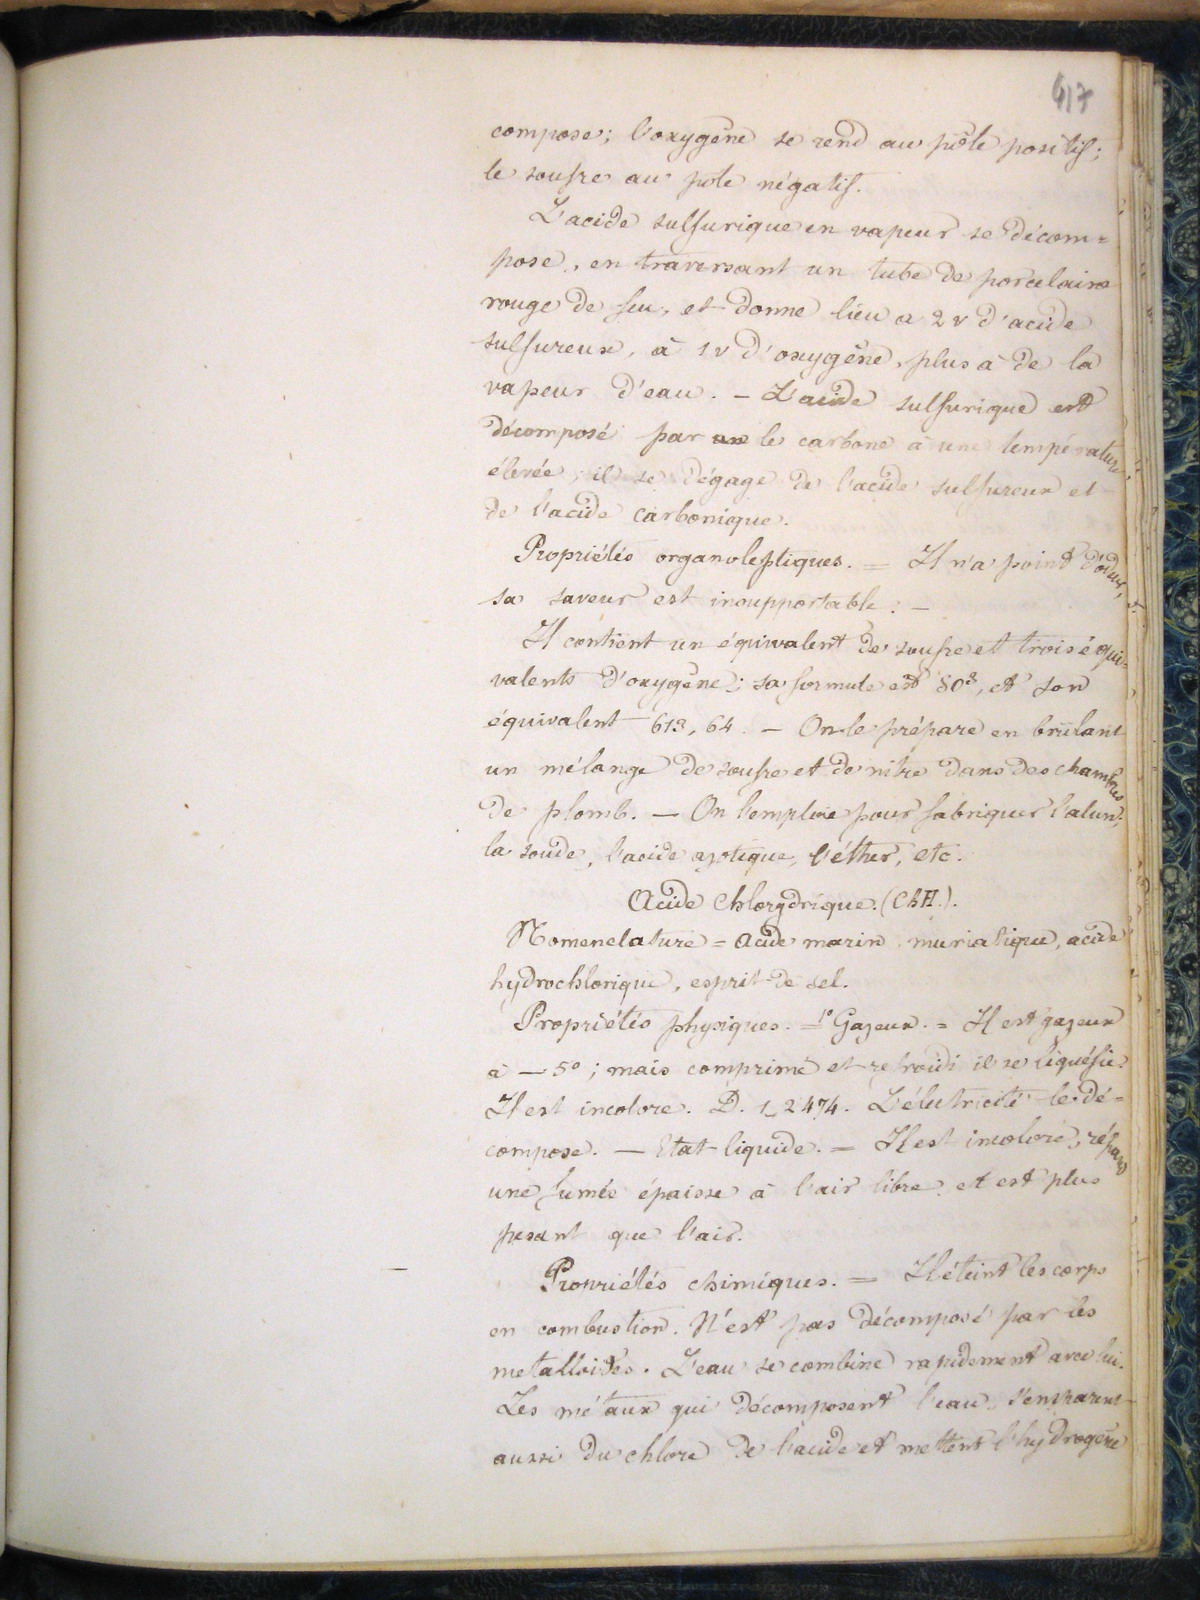 417
compose; l'oxygène se rend au pôle positif;
le soufre au pôle négatif.
L'acide sulfurique en vapeur se décom=
pose, en traversant un tube de porcelaine
rouge de feu, et donne lieu a 2 v d'acide
sulfureux, à 1 v d'oxygène, plus à de la
vapeur d'eau. — L'acide sulfurique est
décomposé par le carbone à une température
élevée, il se dégage de l'acide sulfureux et
de l'acide carbonique.
Propriétés organoleptiques. = Il n'a point d'odeur,
sa saveur est insupportable. —
Il contient un équivalent de soufre et trois équi-
valents d'oxygène; sa formule est SO³, et son
équivalent 613,64. — On le prépare en brûlant
un mélange de soufre et de nitre dans des chambres
de plomb. — On l'emploie pour fabriquer l'alun,
la soude, l'acide azotique, l'éther, etc.
Acide Chlorydrique. (ChH.).
Nomenclature = Acide marin, muriatique, acide
hydrochlorique, esprit de sel.
Propriétés physiques. = 1° Gazeux. = Il est gazeux
à — 5°; mais comprimé et refroidi il se liquéfie.
Il est incolore. D. 1,2474. L'électricité le dé=
compose. — Etat liquide. = Il est incolore, répand
une fumée épaisse à l'air libre, et est plus
pesant que l'air.
Propriétés chimiques. = Il éteint les corps
en combustion. N'est pas décomposé par les
metalloïdes. L'eau se combine rapidement avec lui.
Les métaux qui décomposent l'eau, s'emparent
aussi du chlore de l'acide et mettent l'hydrogène